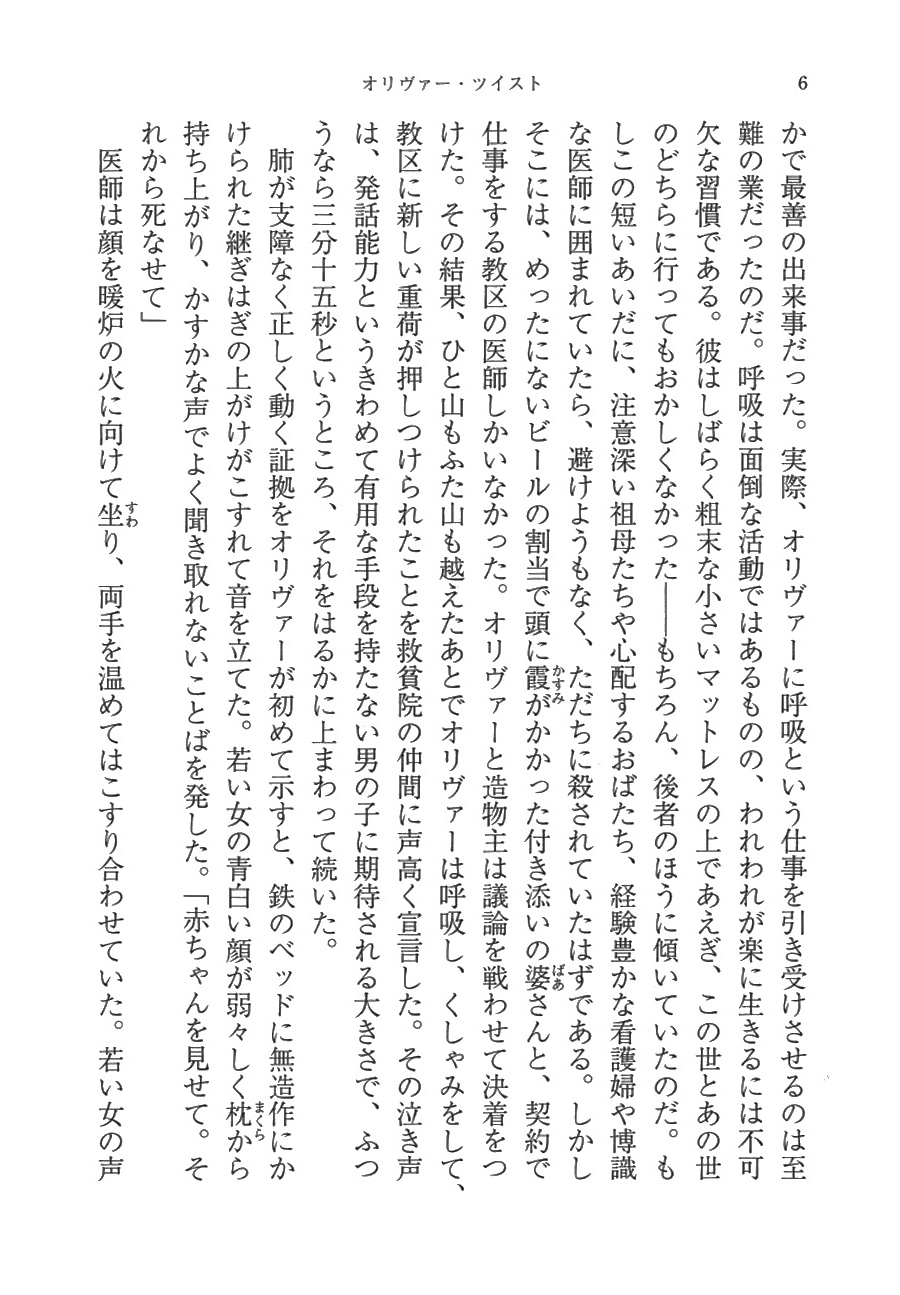 オリヴァー・ツイスト
6
かで最善の出来事だった。実際、オリヴァーに呼吸という仕事を引き受けさせるのは至
難の業だったのだ。呼吸は面倒な活動ではあるものの、われわれが楽に生きるには不可
欠な習慣である。彼はしばらく粗末な小さいマットレスの上であえぎ、この世とあの世
のどちらに行ってもおかしくなかった――もちろん、後者のほうに傾いていたのだ。も
しこの短いあいだに、注意深い祖母たちや心配するおばたち、経験豊かな看護婦や博識
な医師に囲まれていたら、避けようもなく、ただちに殺されていたはずである。しかし
そこには、めったにないビールの割当で頭に霞がかかった付き添いの婆さんと、契約で
仕事をする教区の医師しかいなかった。オリヴァーと造物主は議論を戦わせて決着をつ
けた。その結果、ひと山もふた山も越えたあとでオリヴァーは呼吸し、くしゃみをして、
教区に新しい重荷が押しつけられたことを救貧院の仲間に声高く宣言した。その泣き声
は、発話能力というきわめて有用な手段を持たない男の子に期待される大きさで、ふつ
うなら三分十五秒というところ、それをはるかに上まわって続いた。
肺が支障なく正しく動く証拠をオリヴァーが初めて示すと、鉄のベッドに無造作にか
けられた継ぎはぎの上がけがこすれて音を立てた。若い女の青白い顔が弱々しく枕から
持ち上がり、かすかな声でよく聞き取れないことばを発した。「赤ちゃんを見せて。そ
れから死なせて」
医師は顔を暖炉の火に向けて坐り、両手を温めてはこすり合わせていた。若い女の声